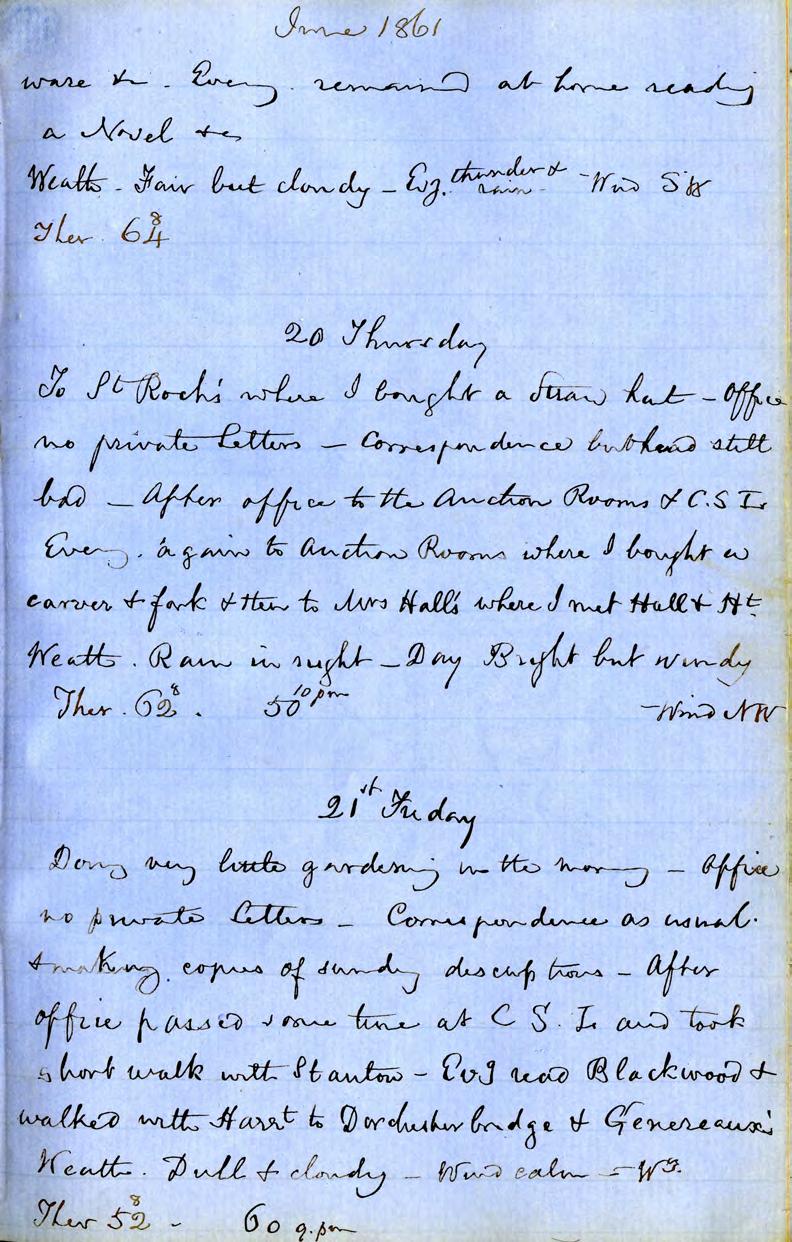 June 1861
ware &c. Eveng. remained at home reading
a Novel &c
Weath - Fair but cloudy - Evg. thunder & rain - Wind SW
Ther. 64 8
20 Thursday
To St Roch's where I bought a Straw hat - Office
no private Letters - Correspondence but head still
bad - After office to the Auction Rooms & C.S.
Eveng. again to Auction Rooms where I bought a
carver & fork & then to Mrs Hall's where I met Hall & Ht
Weath. Rain in night - Day Bright but windy
Ther. 62 8. 50 10 pm - Wind NW
21st Friday
Doing very little gardening in the morng - Office
no private Letters - Correspondence as usual.
& making copies of sundry descriptions - After
office passed some time at C S. and took
short walk with Stanton - Evg read Blackwood &
walked with Harrt to Dorchester bridge & Genereaux's
Weath. Dull & cloudy - Wind calm -
Ther 52 8 - 60 9. pm